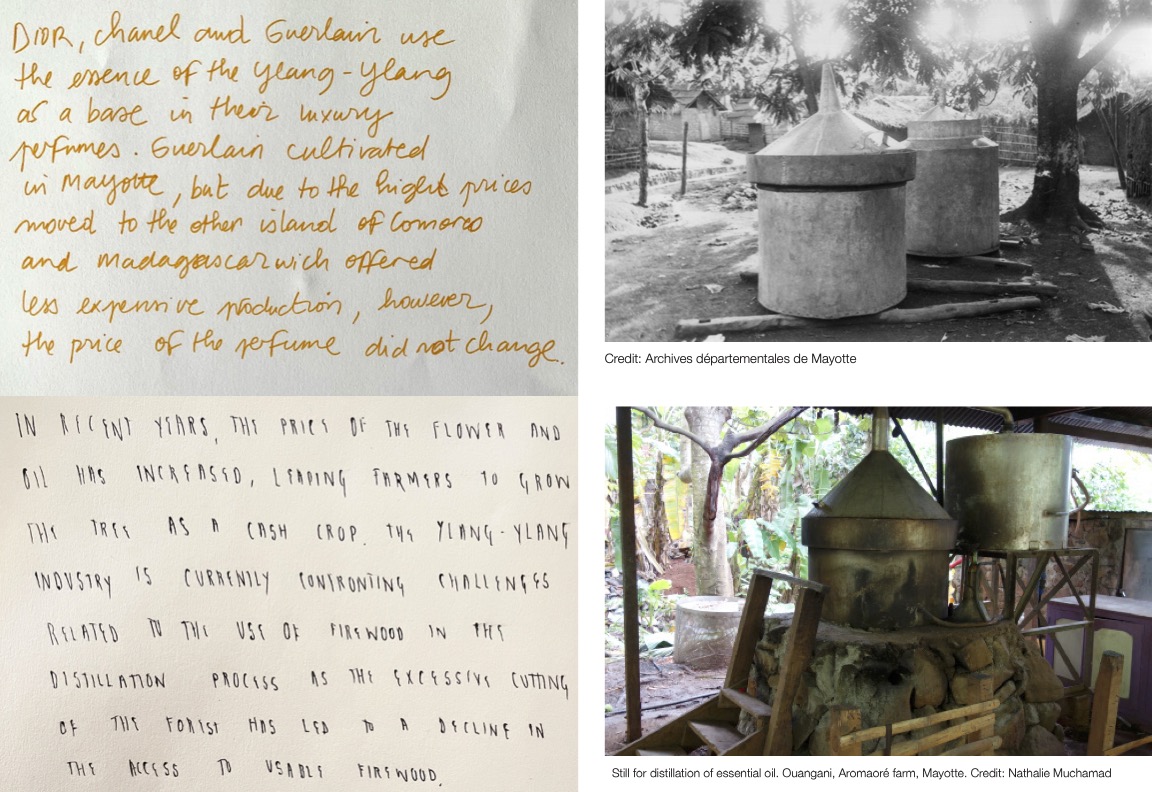 DIOR, Chanel and Guerlain use
the essence of the Ylang-Ylang
as a base in their luxury
perfumes. Guerlain cultivated
in Mayotte, but due to the hight prices
moved to the other island of Comoros
and Madagascar wich offered
less expensive production, however,
the price of the perfume did not change.
IN RECENT YEARS, THE PRICE OF THE FLOWER AND
OIL HAS INCREASED, LEADING FARMERS TO GROW
THE TREE AS A CASH CROP. THE YLANG-YLANG
INDUSTRY IS CURRENTLY CONFRONTING CHALLENGES
RELATED TO THE USE OF FIREWOOD IN THE
DISTILLATION PROCESS AS THE EXCESSIVE CUTTING
OF THE FOREST HAS LED TO A DECLINE IN
THE ACCESS TO USABLE FIREWOOD.
Credit: Archives départementales de Mayotte
Still for distillation of essential oil. Ouangani, Aromaoré farm, Mayotte. Credit: Nathalie Muchamad